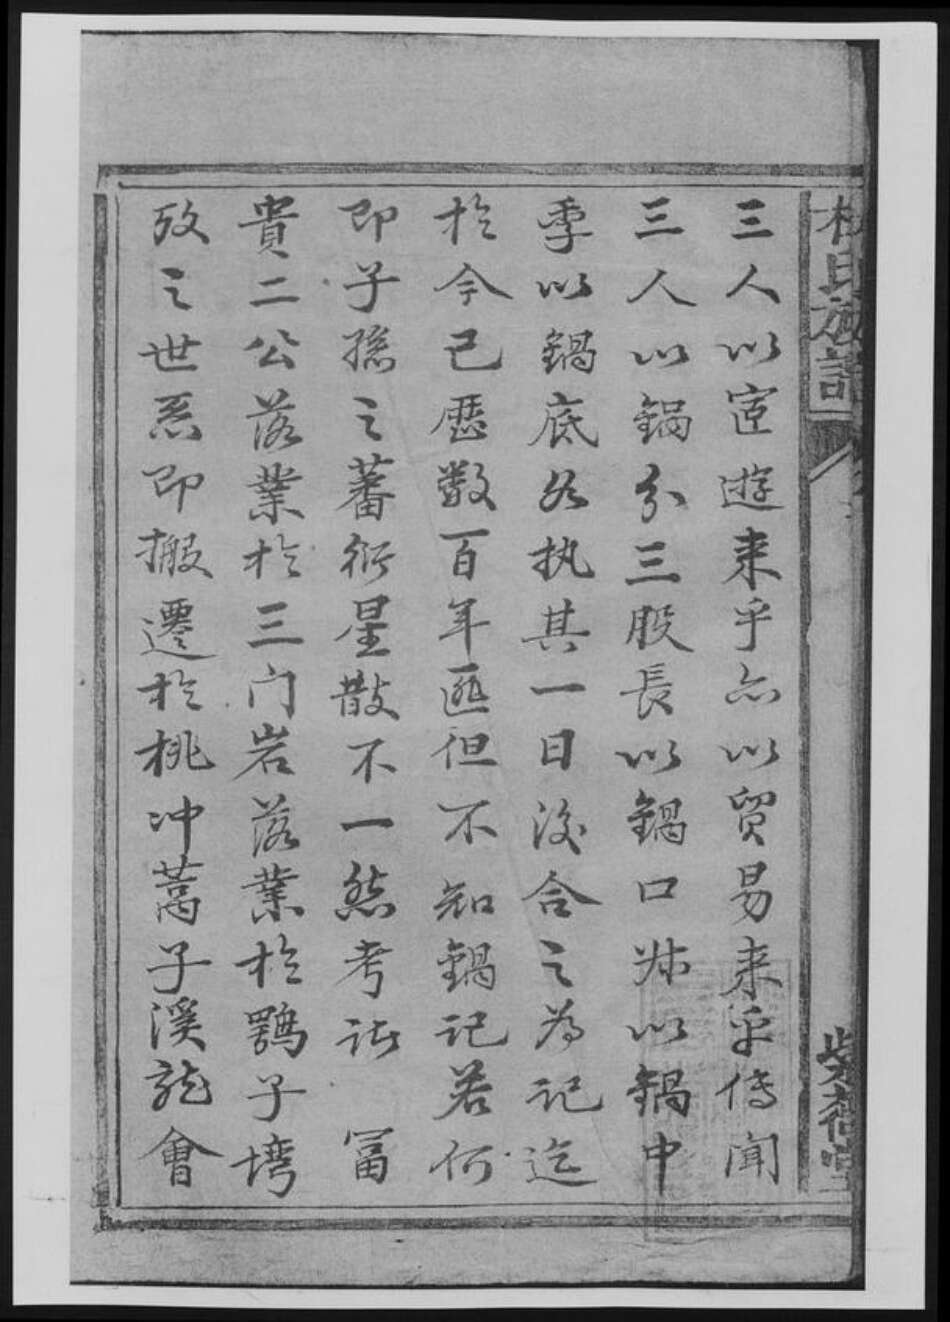 氏族譜
三人以宦遊来乎亦以貿易来乎傳聞
三人以鍋分三股長以鍋口妹以鍋中
季以鍋底各执其一日後合之為記迄
於今已歷数百年匪但不知鍋記若何
即子孫之蕃衍星散不一然考諸 冨
貴二公落業於三门岩落業於鶚子塆
攷之世系即搬遷於桃冲蒿子溪龍會